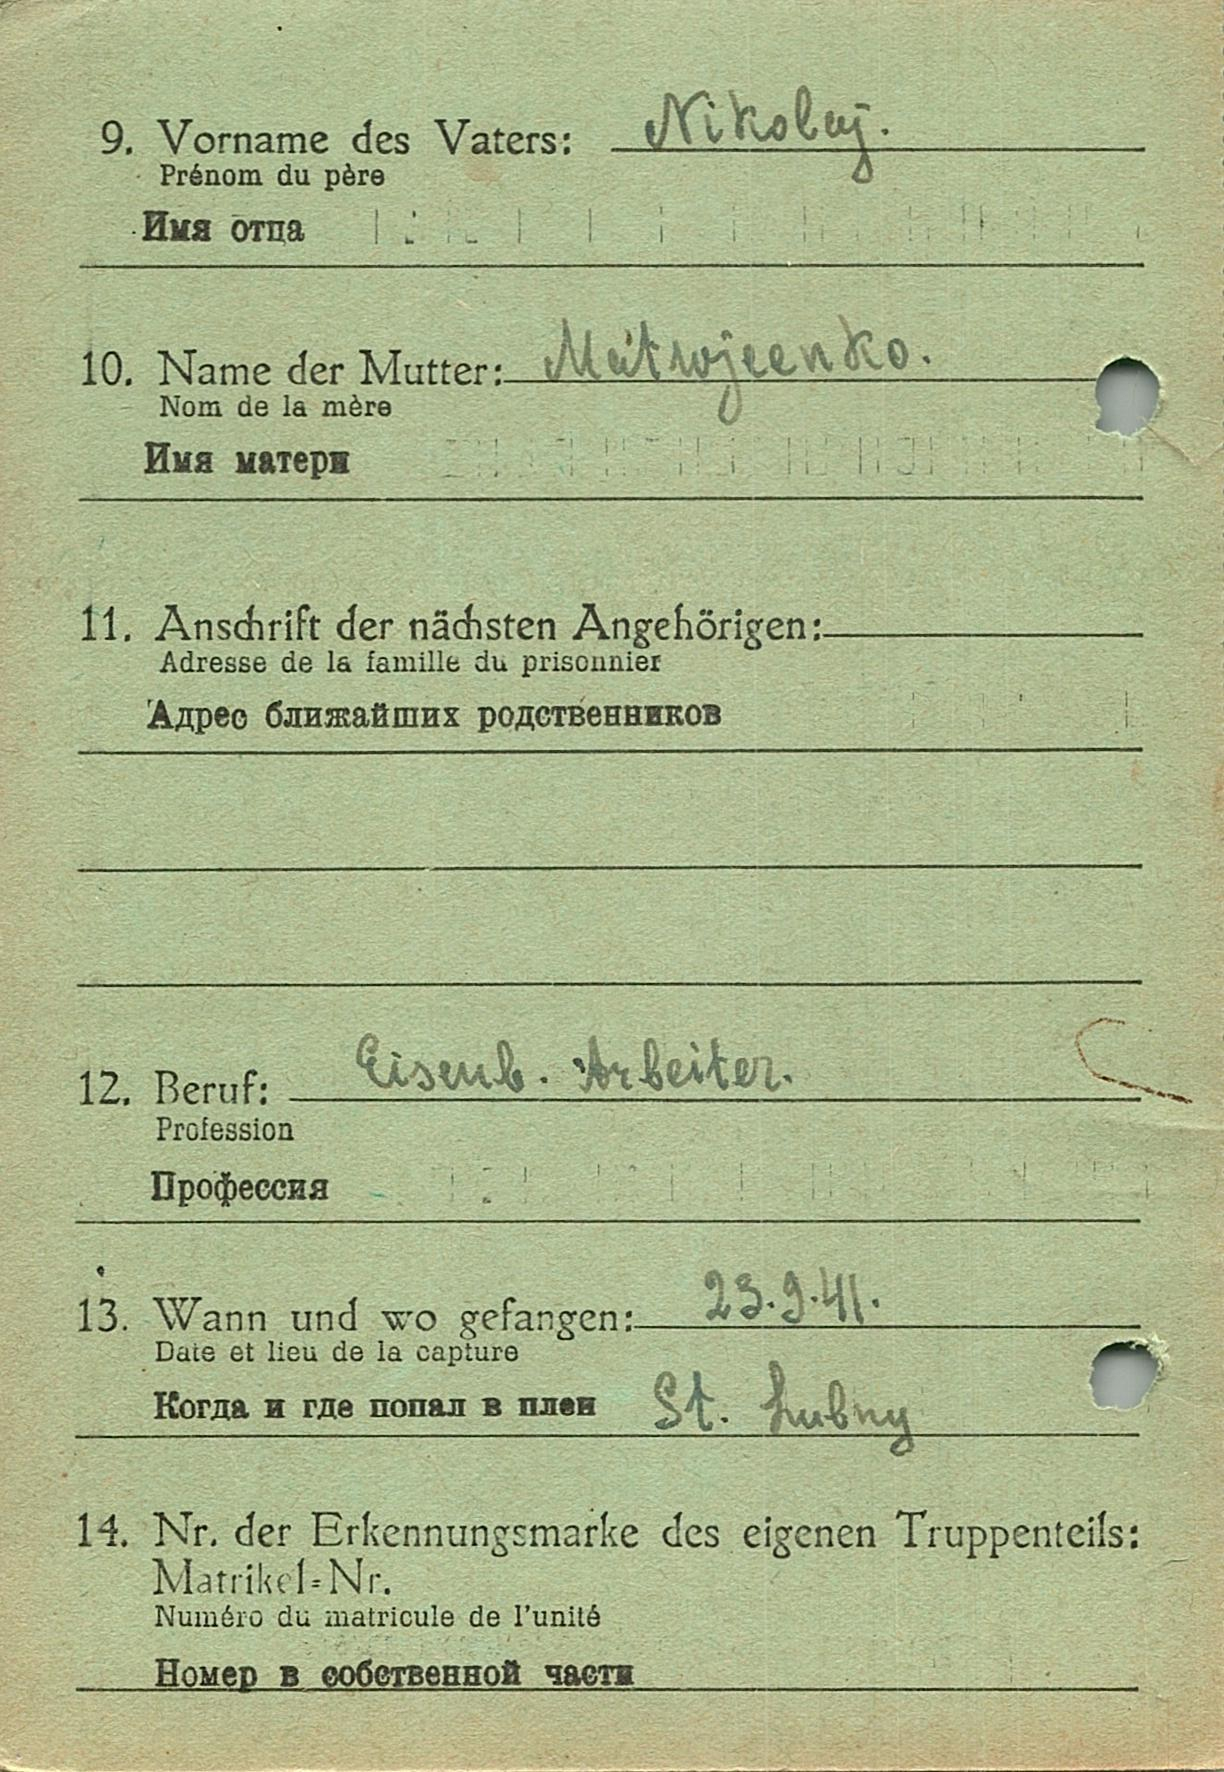 9. Vorname des Vaters: Nikolaj.
Prénom du père
Имя отца
10. Name der Mutter:
Nom de la mère
Имя матери
11. Anschrift der nächsten Angehörigen:
Adresse de la famille du prisonnier
Адрес ближайших родственников
12. Beruf: Eisenb. Arbeiter.
Profession
Профессия
13. Wann und wo gefangen: 23.9.41.
Date et lieu de la capture
Когда и где попал в плен St. Lubny
14. Nr. der Erkennungsmarke des eigenen Truppenteils:
Matrikel=Nr.
Numéro du matricule de l'unité
Номер в собственной части